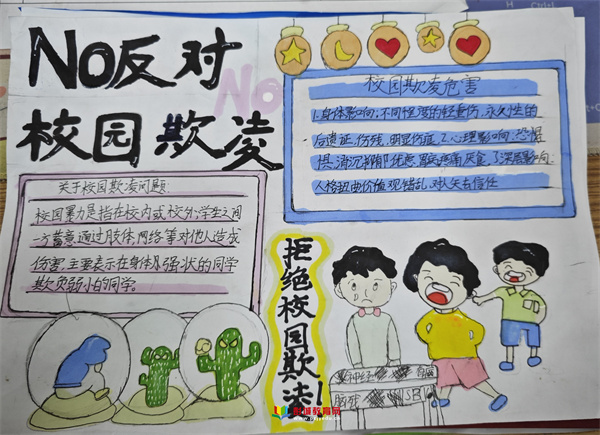 No反对
校园欺凌
No
校园欺凌危害
1.身体影响:不同程度的轻重伤,永久性的
后遗症,伤残,明显伤疤 2.心理影响,恐惧
惧,消沉抑郁忧虑
3.深层影响:
人格扭曲价值观错乱,对人失去信任
关于校园欺凌问题:
校园暴力是指在校内或校外,学生之间
一方蓄意通过肢体,网络等对他人造成
伤害,主要表示在身体及强状的同学
欺负弱小的同学。
拒绝校园欺凌!
神经
脑残
SB